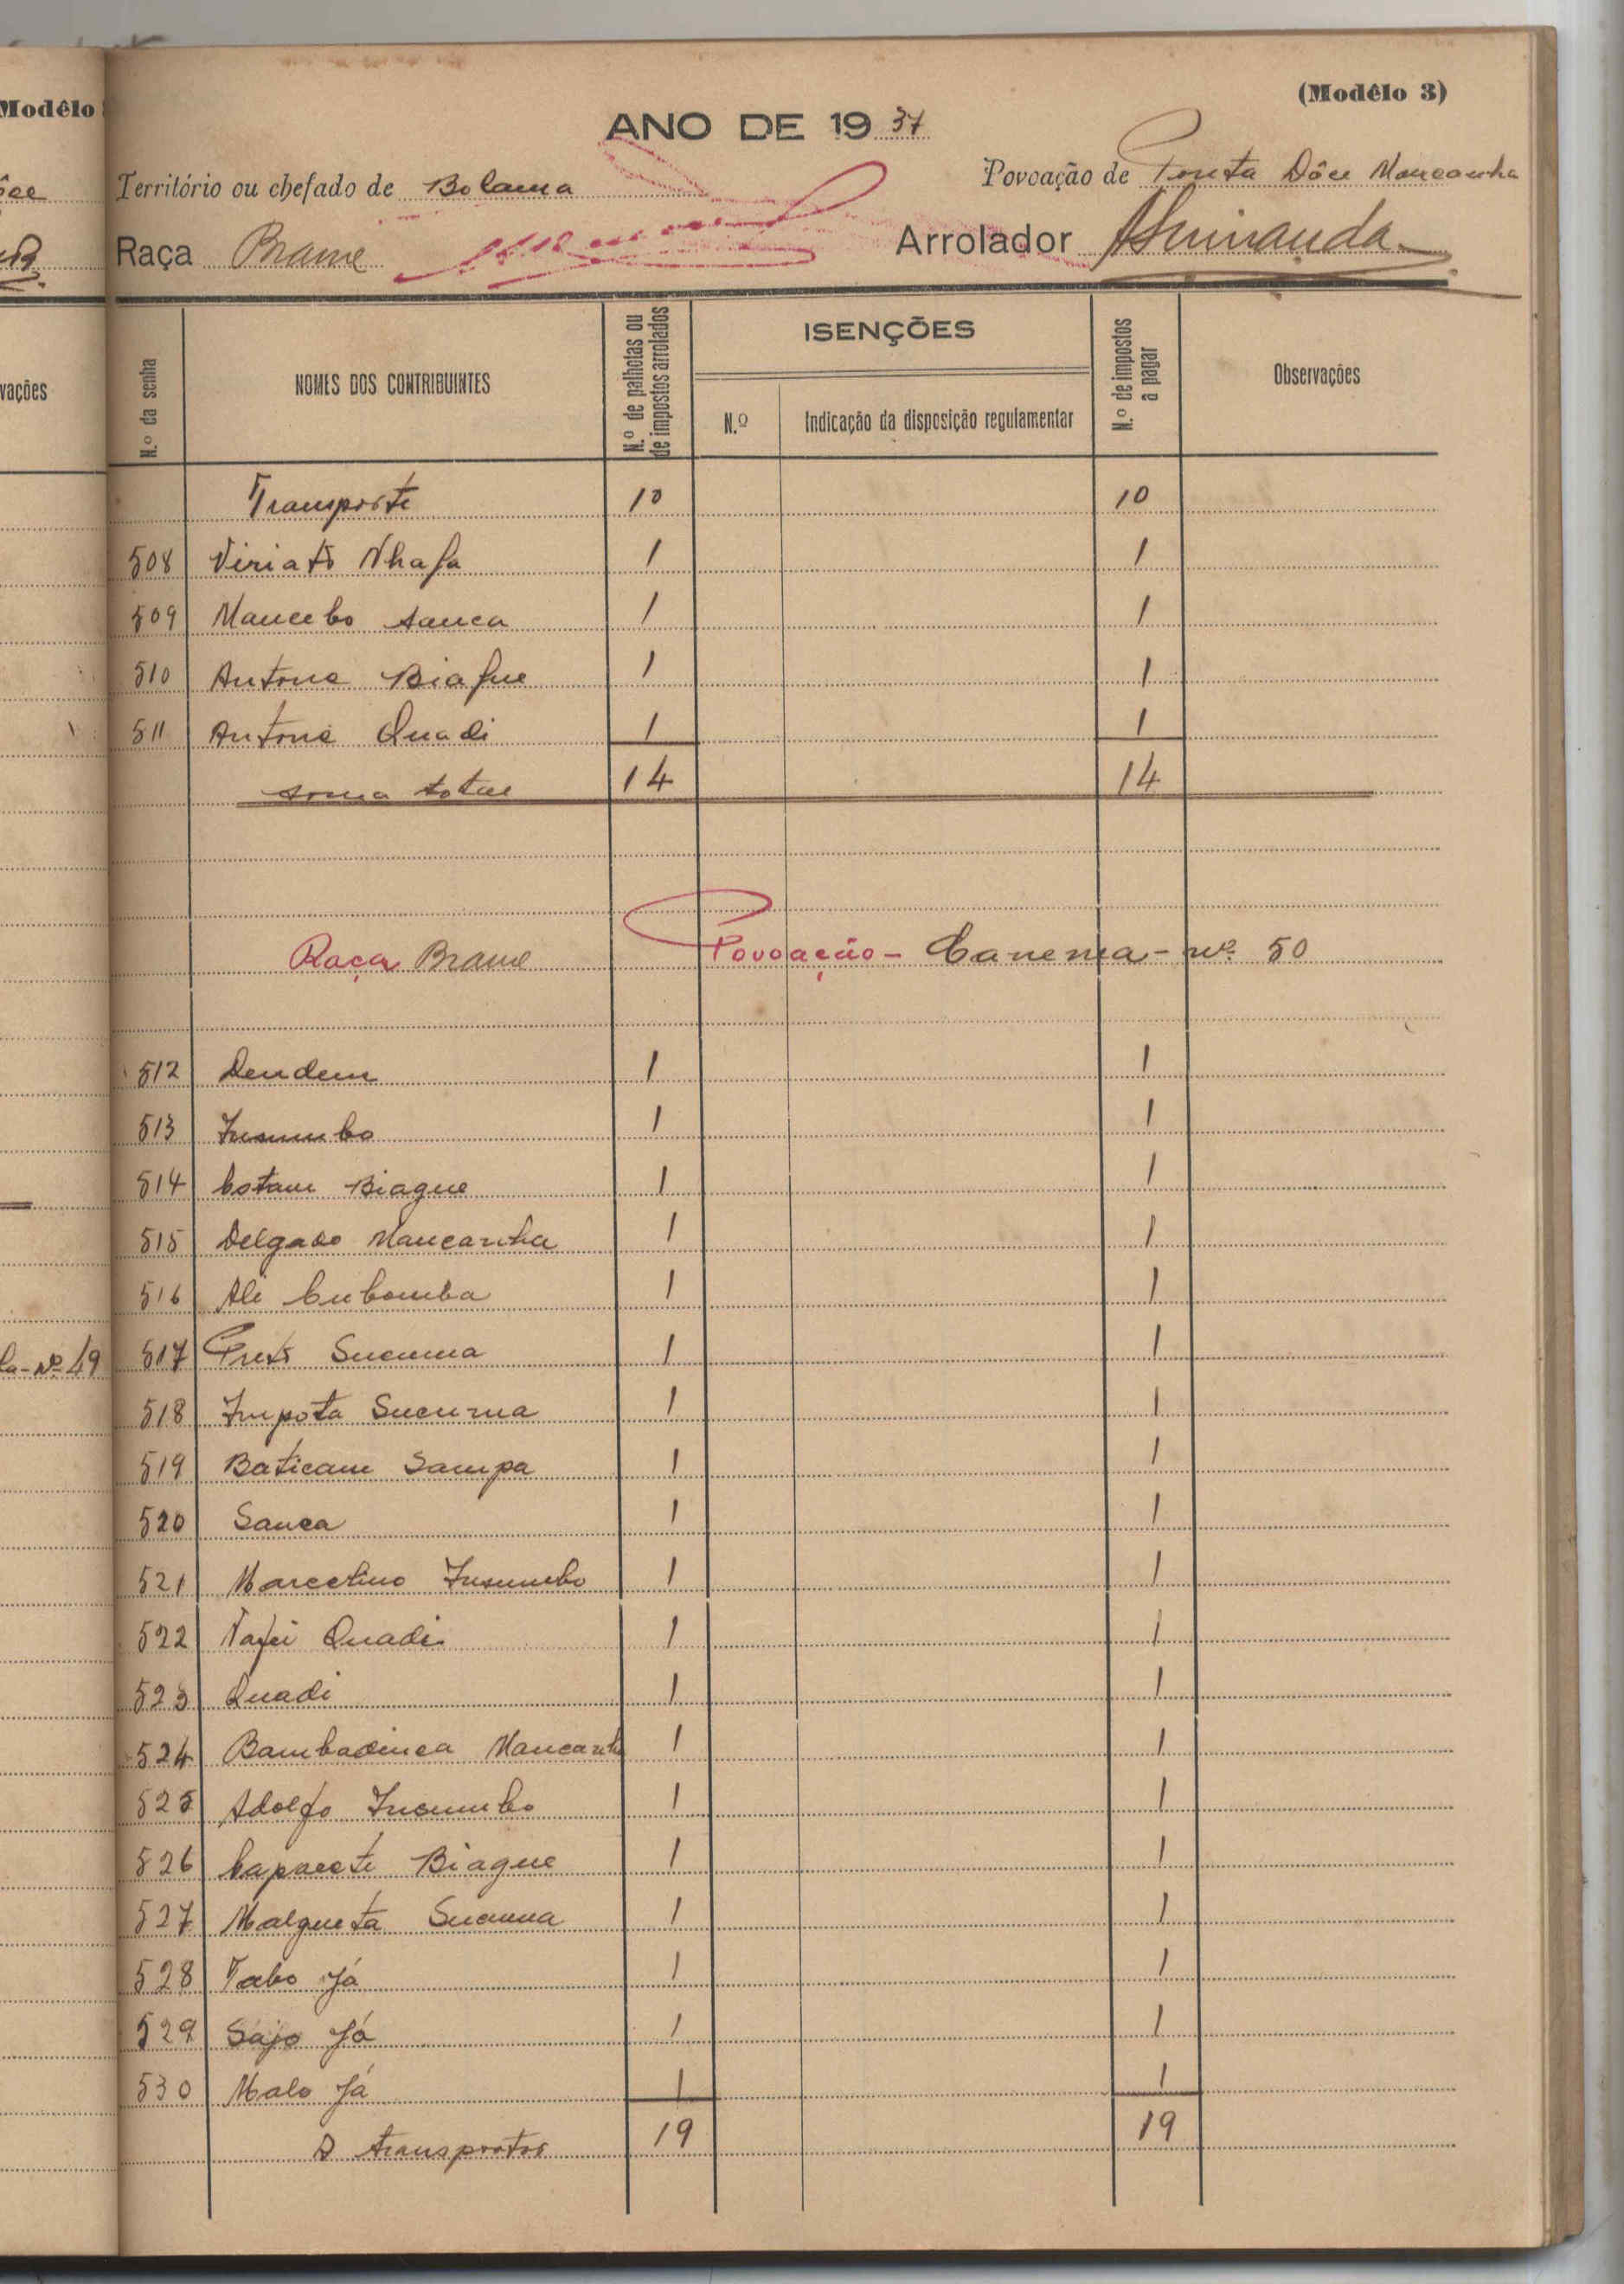 (Modêlo 3)
Modêlo
ANO DE 19 37
Território ou chefado de Bolama Povoação de Ponta Dôce Mancanha
Raça Brame Arrolador
vações
N.º da senha
NOMES DOS CONTRIBUINTES
N.º de palhotas ou de impostos arrolados
ISENÇÕES
N.º
Indicação da disposição regulamentar
N.º de impostos a pagar
Observações
Transporte 10 10
508 Viriato Nhafa 1 1
509 Mancebo Sanca 1 1
510 Antone Biafue 1 1
511 Antone Quadi 1 1
Soma total 14 14
Raça Brame Povoação - Canema - nº 50
512 Dendem 1 1
513 Insumbo 1 1
514 Cotam Biague 1 1
515 Delgado Mancanha 1 1
516 Ali Cubomba 1 1
la-Nº 49
517 Preto Sucuma 1 1
518 Impota Sucuma 1 1
519 Baticam Sampa 1 1
520 Sanca 1 1
521 Marcelino Insumbo 1 1
522 Nafei Quadi 1 1
523 Quadi 1 1
524 Bambadinca Mancanha 1 1
525 Adolfo Insumbo 1 1
526 Capacete Biague 1 1
527 Malgueta Sucuma 1 1
528 Tabo Já 1 1
529 Sajo Já 1 1
530 Malo Já 1 1
A transportar 19 19